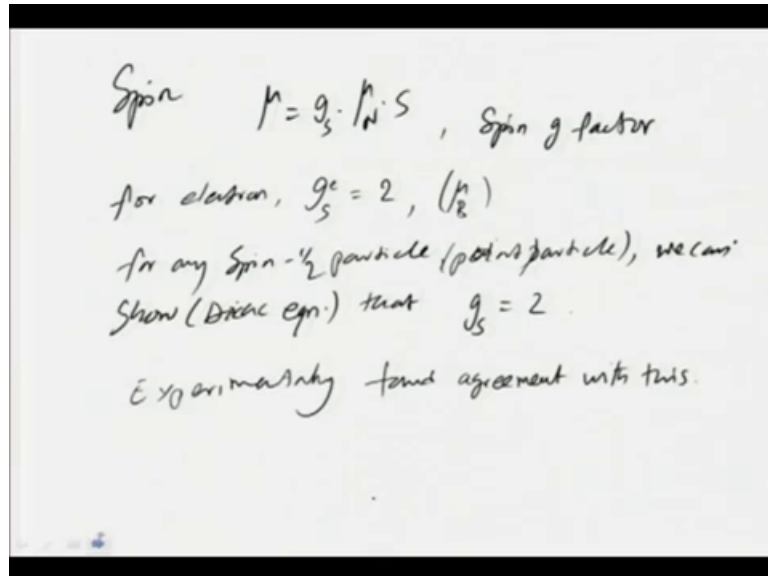 Spin μ = g_S · μ_N · S , Spin g factor
for electron, g_S^e = 2, (μ_B)
for any Spin-½ particle (point particle), we can
Show (Dirac eqn.) that g_S = 2.
Experimentally found agreement with this.